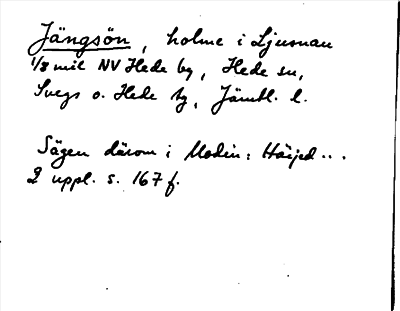 Jängsön, holme i Ljusnan
1/3 mil NV Hede by, Hede sn,
Svegs o. Hede tg, Jämtl. l.
Sägen därom i Modin: Härjed...
2 uppl. s. 167 f.